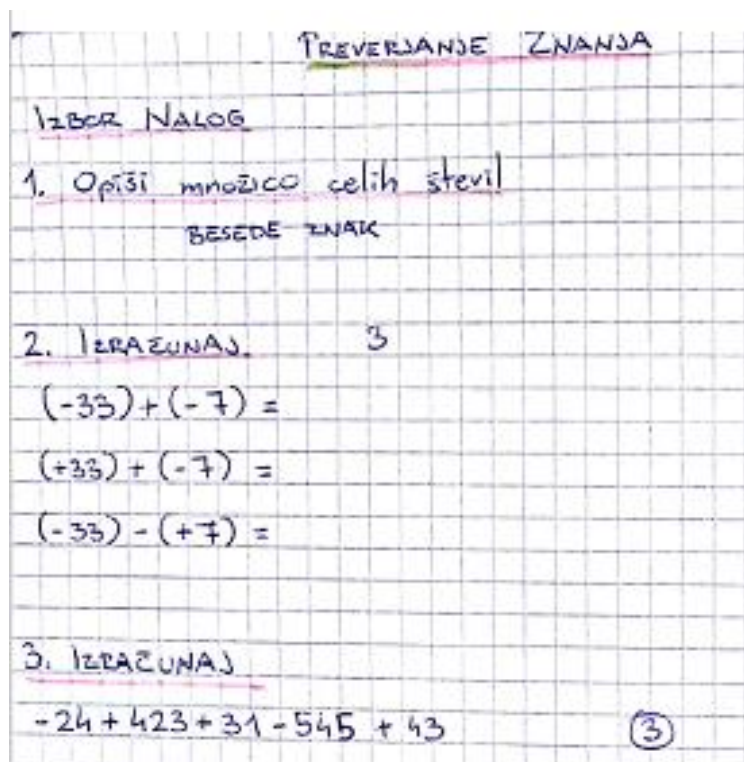 PREVERJANJE ZNANJA
IZBOR NALOG
1. Opiši množico celih števil
BESEDE ZNAK
2. IZRAČUNAJ. 3
(-33) + (-7) =
(+33) + (-7) =
(-33) - (+7) =
3. IZRAČUNAJ
-24 + 423 + 31 - 545 + 43 3